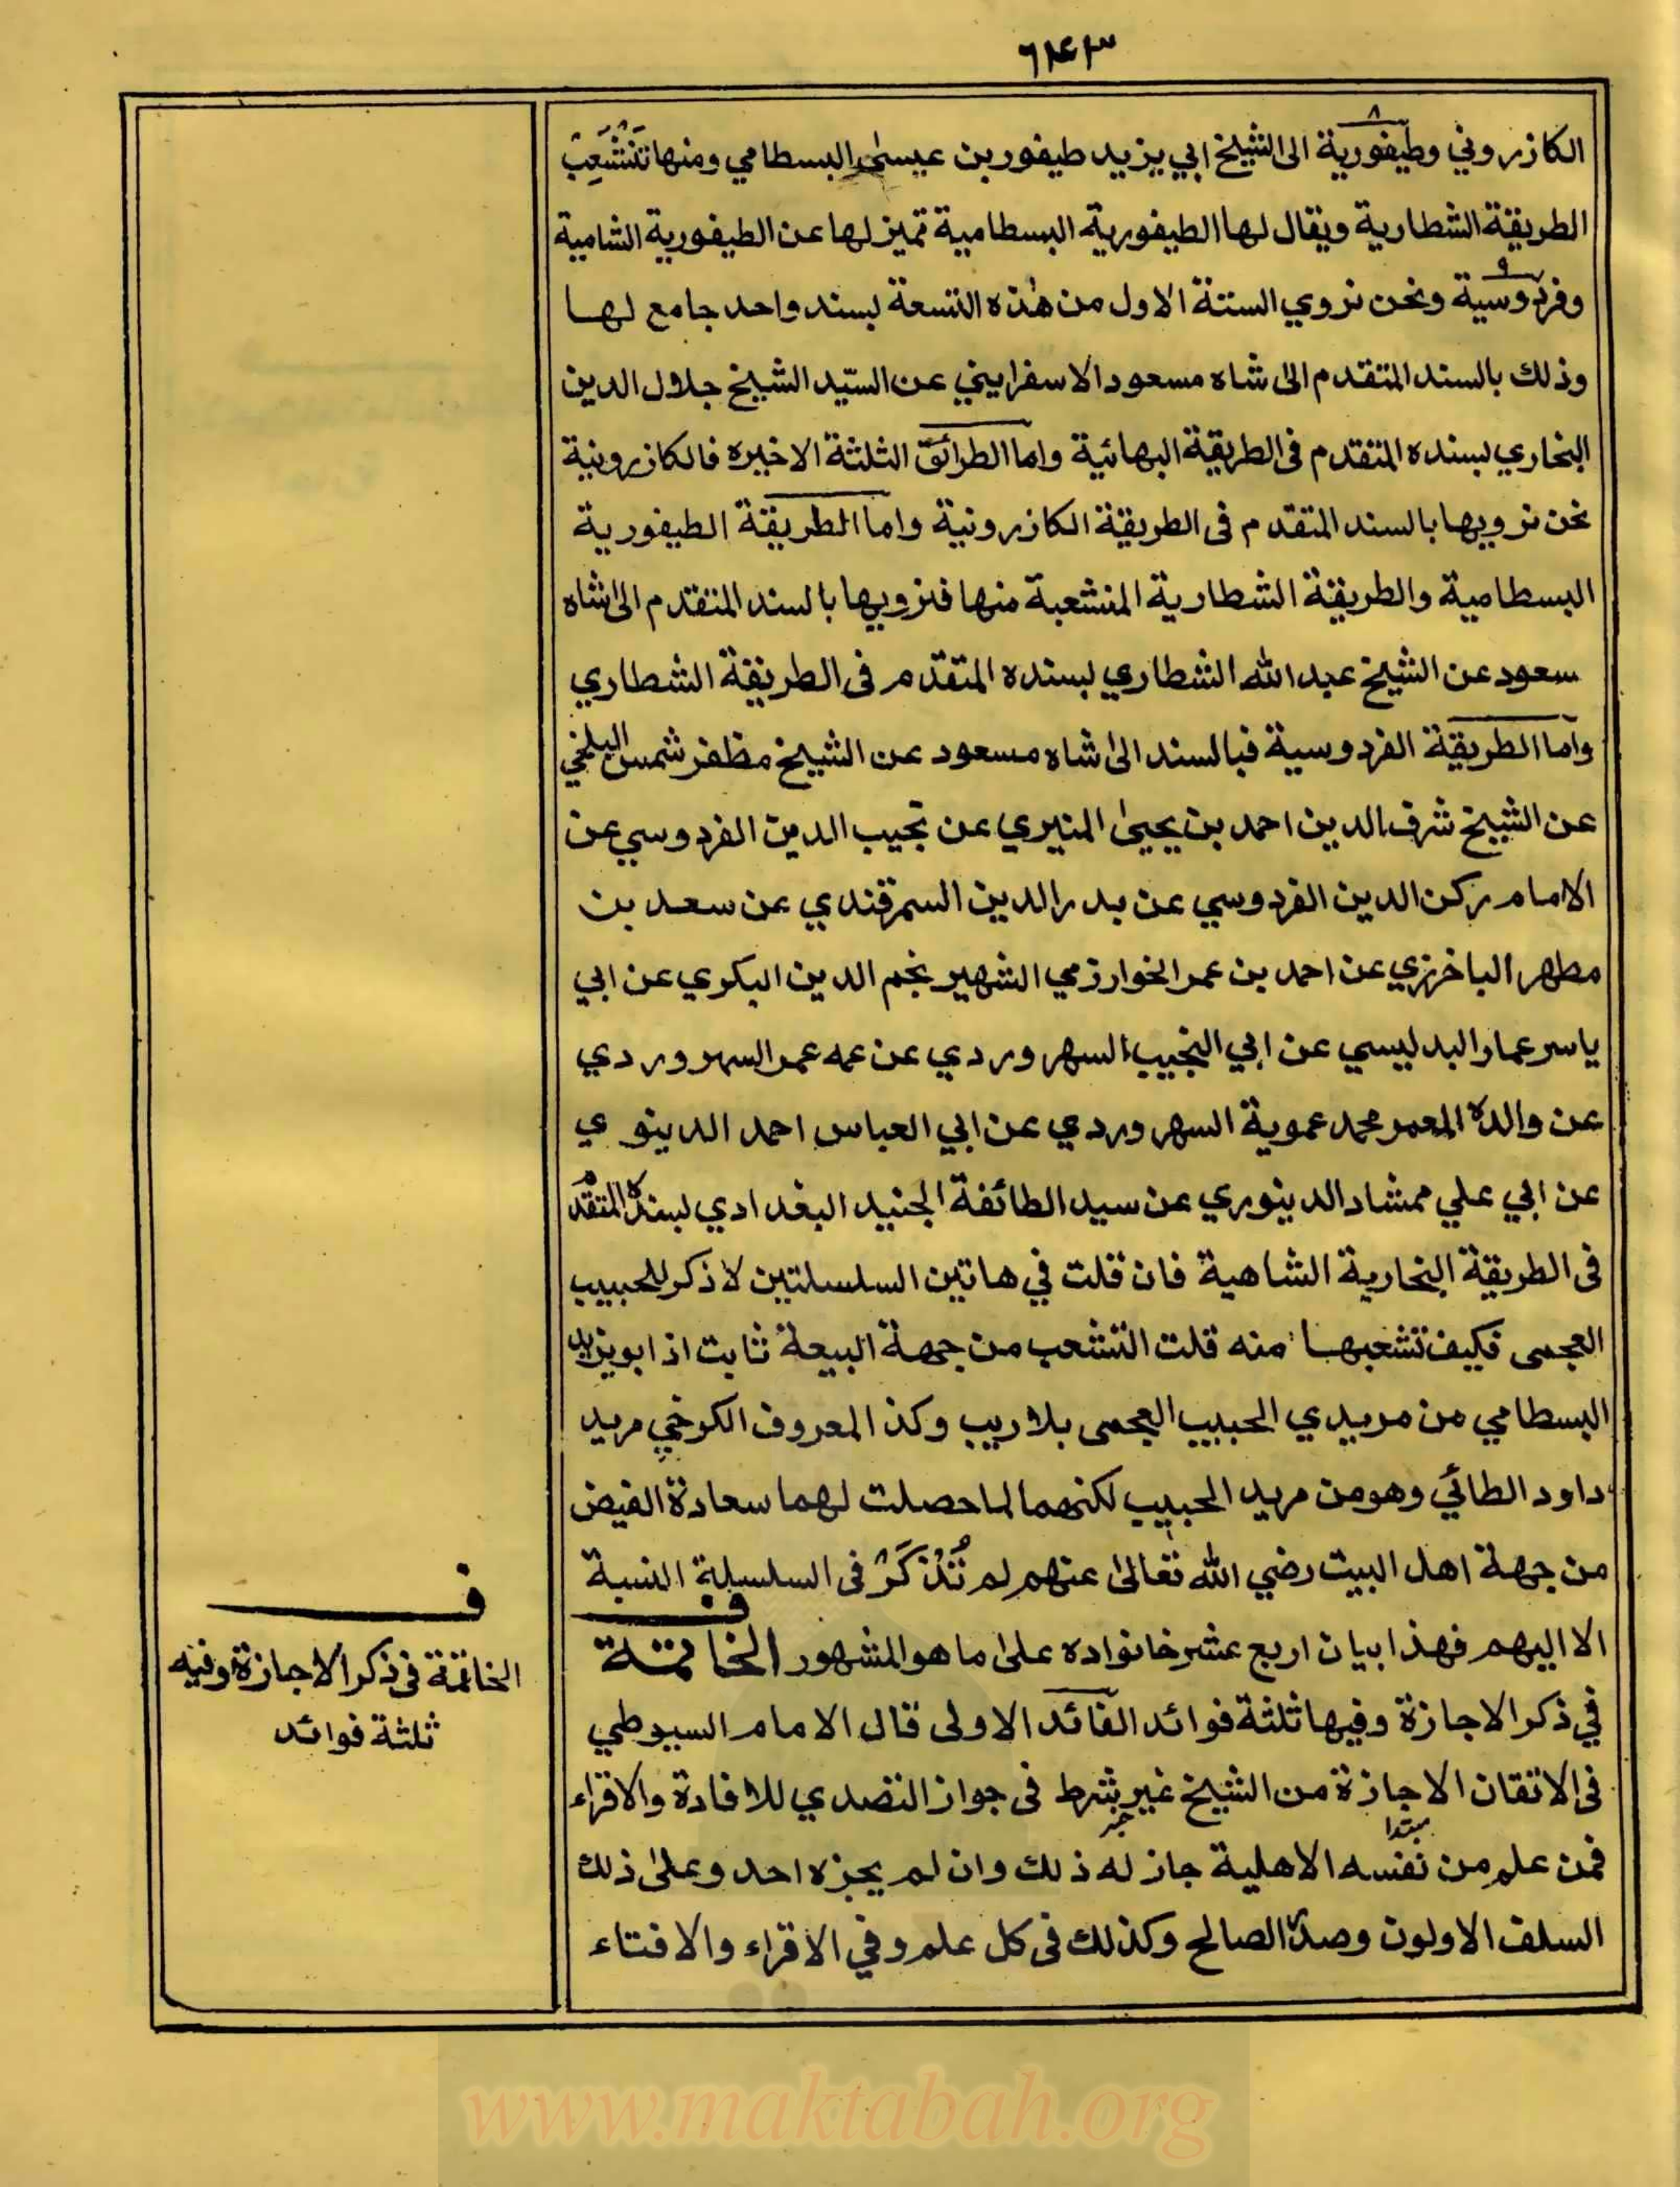 ٦٢٤٣
الكازروني وطيفورية ٨ الى الشيخ ابي يزيد طيفور بن عيسى البسطامي ومنها تَنْشَعِبُ
الطريقة الشطارية ويقال لها الطيفورية البسطامية تميز لها عن الطيفورية الشامية
وفردوسية ٩ ونحن نروي الستة الاول من هذه التسعة بسند واحد جامع لها
وذلك بالسند المتقدم الى شاه مسعود الاسفرايني عن السيّد الشيخ جلال الدين
البخاري بسنده المتقدم فى الطريقة البهائية واما الطرائق الثلثة الاخيره فالكازرونية
نحن نرويها بالسند المتقدم فى الطريقة الكازرونية واما الطريقة الطيفورية
البسطامية والطريقة الشطارية المنشعبة منها فنرويها بالسند المتقدم الى شاه
سعود عن الشيخ عبد الله الشطاري بسنده المتقدم فى الطريقة الشطاري
واما الطريقة الفردوسية فبالسند الى شاه مسعود عن الشيخ مظفر شمس البلخي
عن الشيخ شرف الدين احمد بن يحيى المنيري عن نجيب الدين الفردوسي عن
الامام ركن الدين الفردوسي عن بدر الدين السمرقندي عن سعد بن
مطهر الباخرزي عن احمد بن عمر الخوارزمي الشهير بنجم الدين البكري عن ابي
ياسر عمار البدليسي عن ابي النجيب السهروردي عن عمه عمر السهروردي
عن والده المعمر محمد عموية السهروردي عن ابي العباس احمد الدينوي
عن ابي علي ممشاد الدينوري عن سيد الطائفة الجنيد البغدادي بسنده المتقدم
فى الطريقة البخارية الشاهية فان قلت في هاتين السلسلتين لا ذكر للحبيب
العجمى فكيف تشعبها منه قلت التشعب من جهة البيعة ثابت اذ ابو يزيد
البسطامي من مريدي الحبيب العجمى بلا ريب وكذا المعروف الكرخي مريد
داود الطائي وهو من مريد الحبيب لكنهما لما حصلت لهما سعادة الفيض
من جهة اهل البيت رضي الله تعالى عنهم لم تُذْكَرْ فى السلسلة النسبة
الا اليهم فهذا بيان اربع عشر خانواده على ما هو المشهور الخاتمة
في ذكر الاجازة وفيها ثلثة فوائد الفائد الاولى قال الامام السيوطي
فى الاتقان الاجازة من الشيخ غير شرط فى جواز التصدي للافادة والاقراء
مبتدا خبر
فمن علم من نفسه الاهلية جاز له ذلك وان لم يجزه احد وعلى ذلك
السلف الاولون وصدره الصالح وكذلك فى كل علم وفي الاقراء والافتاء
ف
الخاتمة فى ذكر الاجازة وفيه
ثلثة فوائد
www.maktabah.org